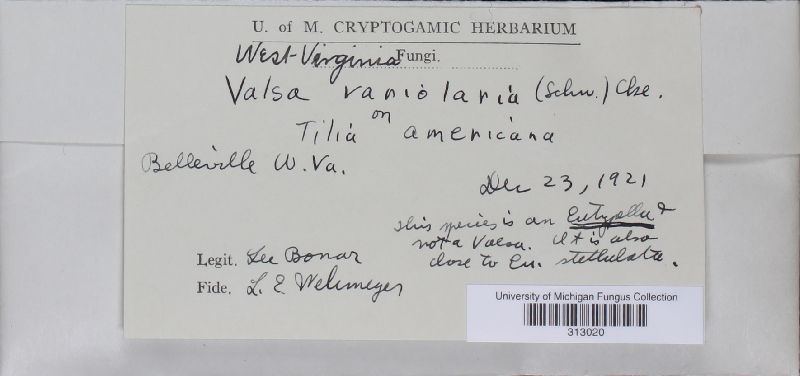 U. of M. CRYPTOGAMIC HERBARIUM
West-Virginia Fungi.
Valsa variolaria (Schw.) Cke.
on
Tilia americana
Belleville W. Va.
Dec 23, 1921
This species is an Eutypella &
not a Valsa. It is also
close to Eu. stellulata.
Legit. Lee Bonar
Fide. L. E. Wehmeyer
University of Michigan Fungus Collection
313020